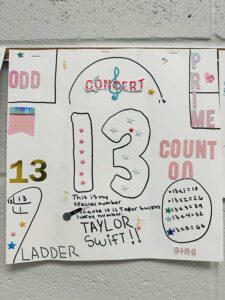 ODD
CONCERT
PRIME
13
13
COUNT
ON
13
13
This is my
special number
because it is Taylor Swifts
lucky number.
TAYLOR
SWiFT!!
13x2=26
13x3=39
13x4=52
13x5=65
LADDER